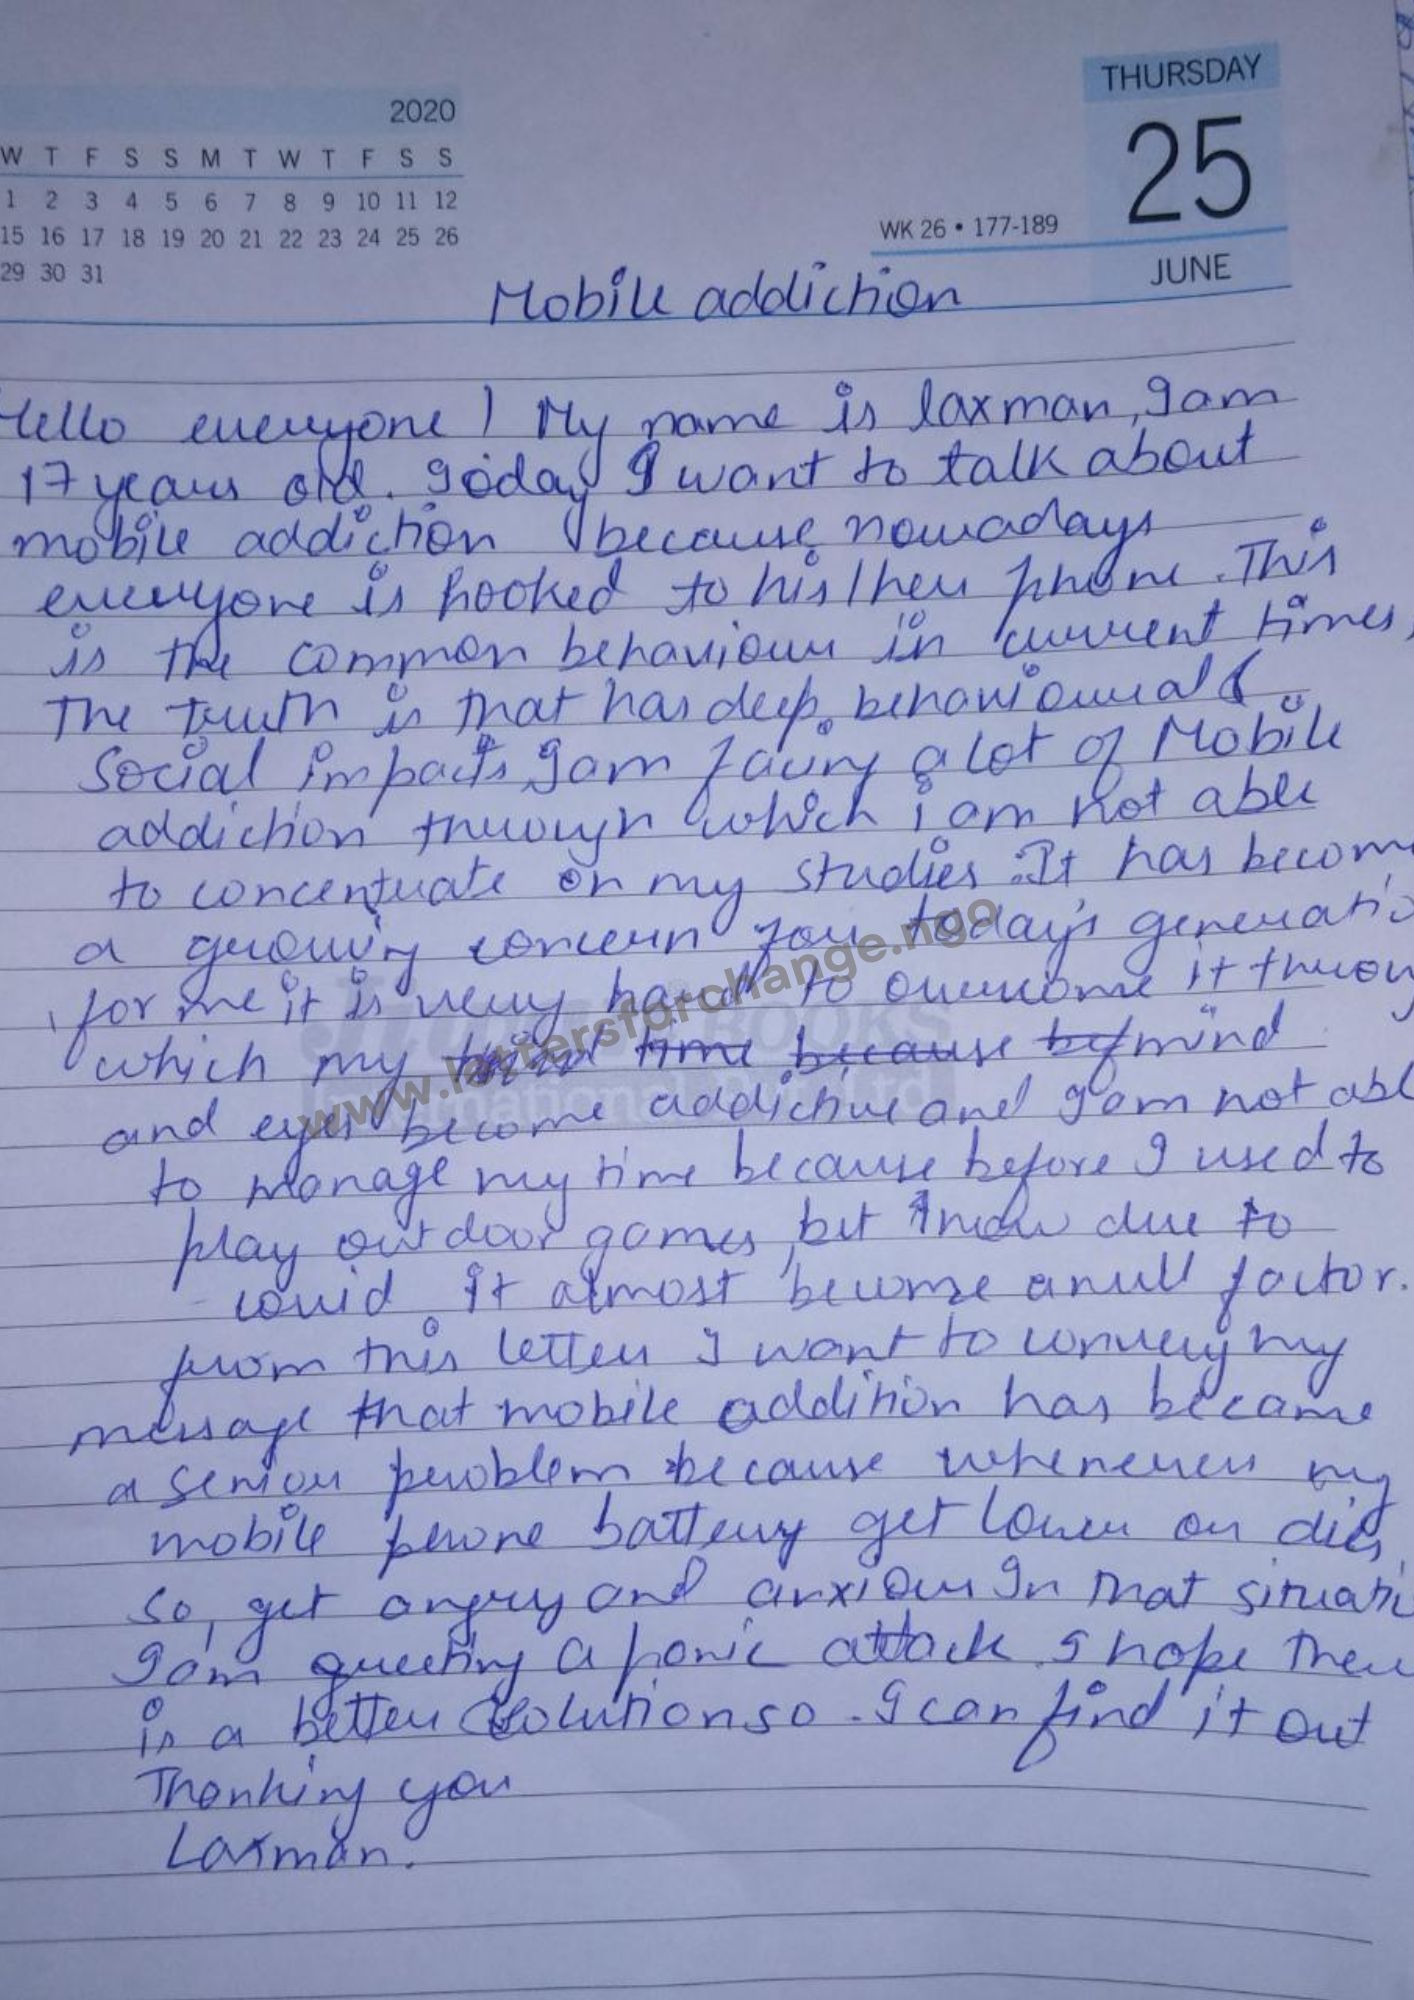 2020
W T F S S M T W T F S S
1 2 3 4 5 6 7 8 9 10 11 12
15 16 17 18 19 20 21 22 23 24 25 26
29 30 31
THURSDAY
25
WK 26 • 177-189
JUNE
Mobile addiction
Hello everyone! My name is laxman, I am
17 years old. Today I want to talk about
mobile addiction because nowadays
everyone is hooked to his/her phone. This
is the common behaviour in current times,
The truth is that has deep behavioural &
Social impacts, I am facing a lot of Mobile
addiction through which i am not able
to concentrate on my studies. It has becom
a growing concern for today's generatio
for me it is very hard to overcome it throu
which my time because mind
and eyes become addictive and I am not abl
to manage my time because before I used to
play outdoor games, but now due to
covid it almost become a null factor.
from this letter I want to convey my
message that mobile addition has became
a serious problem because whenever my
mobile phone battery get lower or dies,
so, get angry and anxious In that situati
I am getting a panic attack. I hope there
is a better solution so. I can find it out
Thanking you
Laxman.
www.lettersforchange.ngo
BOOKS
International